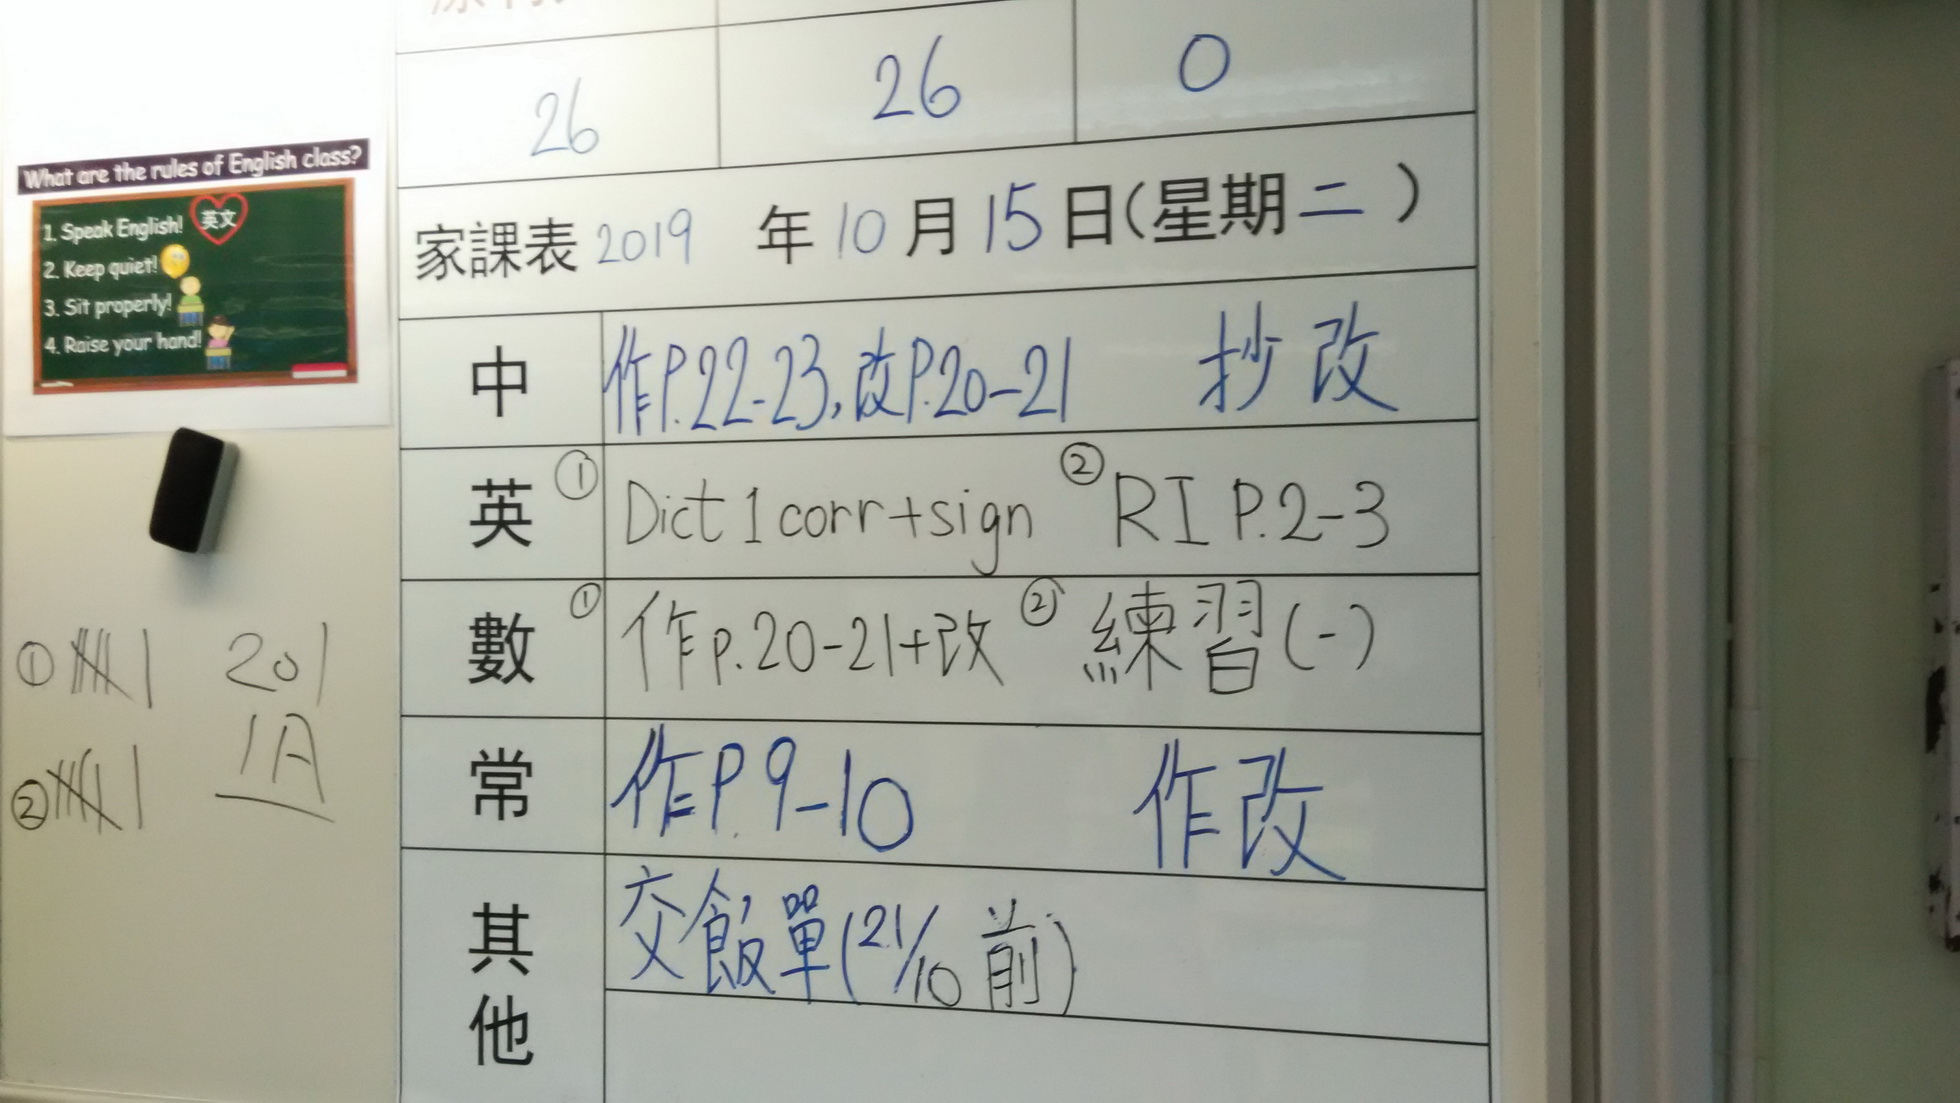 26 26 0
家課表 2019 年 10 月 15 日(星期二)
中 作P.22-23,改P.20-21 抄改
英 ① Dict 1 corr+sign ② RI P.2-3
數 ① 作p.20-21+改 ② 練習(-)
常 作P.9-10 作改
其他 交飯單(21/10 前)
What are the rules of English class?
英文
1. Speak English!
2. Keep quiet!
3. Sit properly!
4. Raise your hand!
① 201
1A
②